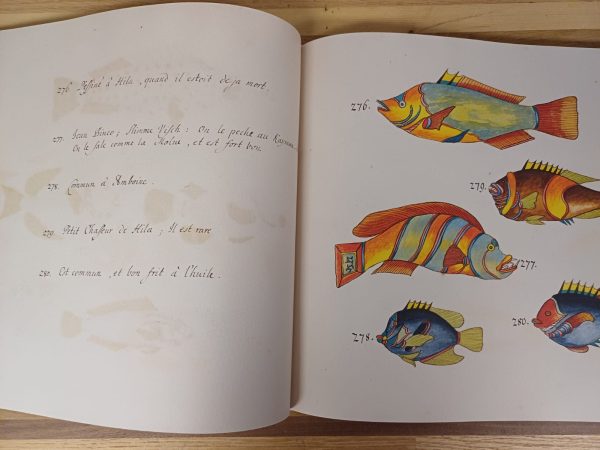 276. Dessiné à Hila, quand il estoit deja mort.
277. Jean Binco; Slimme Visch: On le peche au
On le sale comme la Molue, et est fort bon.
278. Commun à Amboine.
279. Petit Chasseur de Hila; Il est rare
280. Est commun, et bon frit à l'huile.
276.
279.
277.
278.
280.